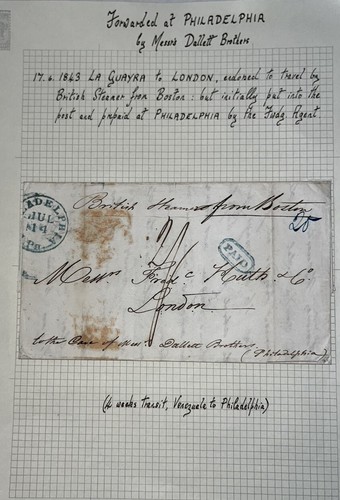 Forwarded at PHILADELPHIA
by Messrs Dallett Brothers
17.6.1843 LA GUAYRA to LONDON, endorsed to travel by
British Steamer from Boston : but initially put into the
post and prepaid at PHILADELPHIA by the Fwdg Agent.
British Steamer from Boston
PHILADELPHIA
JUL
14
Pa.
25
PAID
Messrs Fredc Huth & Co
London
to the Care of Messrs Dallett Brothers
(Philadelphia)
(4 weeks transit, Venezuela to Philadelphia)